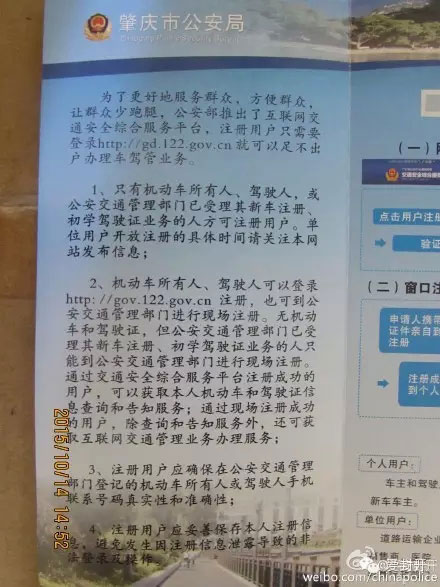 肇庆市公安局
为了更好地服务群众，方便群众，
让群众少跑腿，公安部推出了互联网交
通安全综合服务平台，注册用户只需要
登录http://gd.122.gov.cn就可以足不出
户办理车驾管业务。
1、只有机动车所有人、驾驶人，或
公安交通管理部门已受理其新车注册、
初学驾驶证业务的人方可注册用户。单
位用户开放注册的具体时间请关注本网
站发布信息；
2、机动车所有人、驾驶人可以登录
http://gov.122.gov.cn 注册，也可到公
安交通管理部门进行现场注册。无机动
车和驾驶证，但公安交通管理部门已受
理其新车注册、初学驾驶证业务的人只
能到公安交通管理部门进行现场注册。
通过交通安全综合服务平台注册成功的
用户，可以获取本人机动车和驾驶证信
息查询和告知服务；通过现场注册成功
的用户，除查询和告知服务外，还可获
取互联网交通管理业务办理服务；
3、注册用户应确保在公安交通管理
部门登记的机动车所有人或驾驶人手机
联系号码真实性和准确性；
4、注册用户应妥善保存本人注册信
息，避免发生因注册信息泄露导致的非
法登录及操作
（一）网
点击用户注册
验证
（二）窗口注
申请人携带
证件亲自到
注册
注册成
到个人
个人用户：
车主和驾驶
新车车主。
单位用户：
道路运输企业
销售商、医院
2015/10/14 14:52
weibo.com/chinapolice